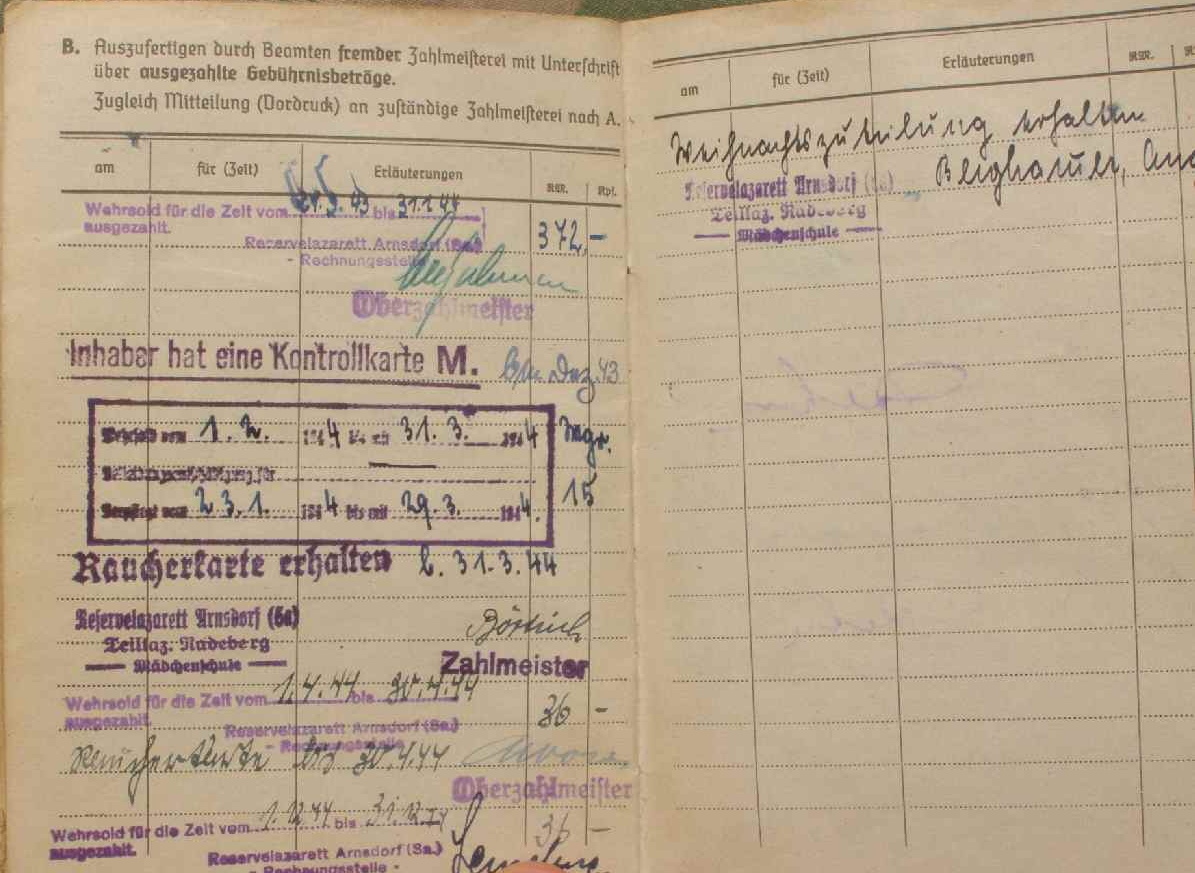 B. Auszufertigen durch Beamten fremder Zahlmeisterei mit Unterschrift
über ausgezahlte Gebührnisbeträge.
Zugleich Mitteilung (Vordruck) an zuständige Zahlmeisterei nach A.
am für (Zeit) Erläuterungen RM. Rpf.
Wehrsold für die Zeit vom 43 bis 31.1.44
ausgezahlt. 372,–
Reservelazarett Arnsdorf (Sa.)
- Rechnungsstelle
Oberzahlmeister
Inhaber hat eine Kontrollkarte M. Dez. 43
1.2. 1944 bis mit 31.3. 1944
23.1. 1944 bis mit 29.3. 1944. 15
Raucherkarte erhalten b. 31.3.44
Reservelazarett Arnsdorf (Sa)
Teillaz. Radeberg
— Mädchenschule —
Zahlmeister
Wehrsold für die Zeit vom 1.4.44 bis 30.4.44
ausgezahlt. 36 –
Reservelazarett Arnsdorf (Sa.)
- Rechnungsstelle
Raucherkarte bis 30.4.44
Oberzahlmeister
Wehrsold für die Zeit vom 1.12.44 bis 31.12.44
ausgezahlt. 36 –
Reservelazarett Arnsdorf (Sa.)
- Rechnungsstelle -
am für (Zeit) Erläuterungen RM.
Weihnachtszuteilung erhalten
Reservelazarett Arnsdorf (Sa)
Teillaz. Radeberg
— Mädchenschule —